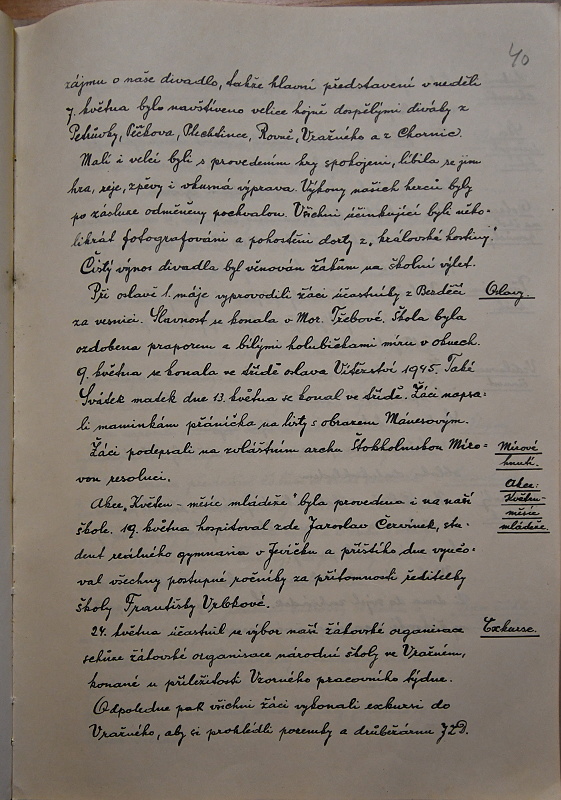 40
zájmu o naše divadlo, takže hlavní představení v neděli
7. května bylo navštíveno velice hojně dospělými diváky z
Petrůvky, Pěčkova, Plechtince, Rovně, Vražného a z Chornic.
Malí i velcí byli s provedením hry spokojeni, líbila se jim
hra, reje, zpěvy i vkusná výprava. Výkony našich herců byly
po zásluze odměněny pochvalou. Všichni účinkující byli něko-
likrát fotografováni a pohostěni dorty z „královské hostiny".
Čistý výnos divadla byl věnován žákům na školní výlet.
Při oslavě 1. máje vyprovodili žáci účastníky z Bezděčí
Oslavy.
za vesnici. Slavnost se konala v Mor. Třebové. Škola byla
ozdobena praporem a bílými holubičkami míru v oknech.
9. května se konala ve třídě oslava Vítězství 1945. Také
Svátek matek dne 13. května se konal ve třídě. Žáci napsa-
li maminkám přáníčka na listy s obrazem Mánesovým.
Žáci podepsali na zvláštním archu Stokholmskou Míro-
Mírové
hnutí.
vou resoluci.
Akce:
Květen-
měsíc
mládeže.
Akce „Květen - měsíc mládeže" byla provedena i na naší
škole. 19. května hospitoval zde Jaroslav Červinek, stu-
dent reálného gymnasia v Jevíčku a příštího dne vyučo-
val všechny postupné ročníky za přítomnosti ředitelky
školy Františky Vrbkové.
24. května účastnil se výbor naší žákovské organisace
Exkurse.
schůze žákovské organisace národní školy ve Vražném,
konané u příležitosti Vzorného pracovního týdne.
Odpoledne pak všichni žáci vykonali exkursi do
Vražného, aby si prohlédli pozemky a drůbežárnu JZD.